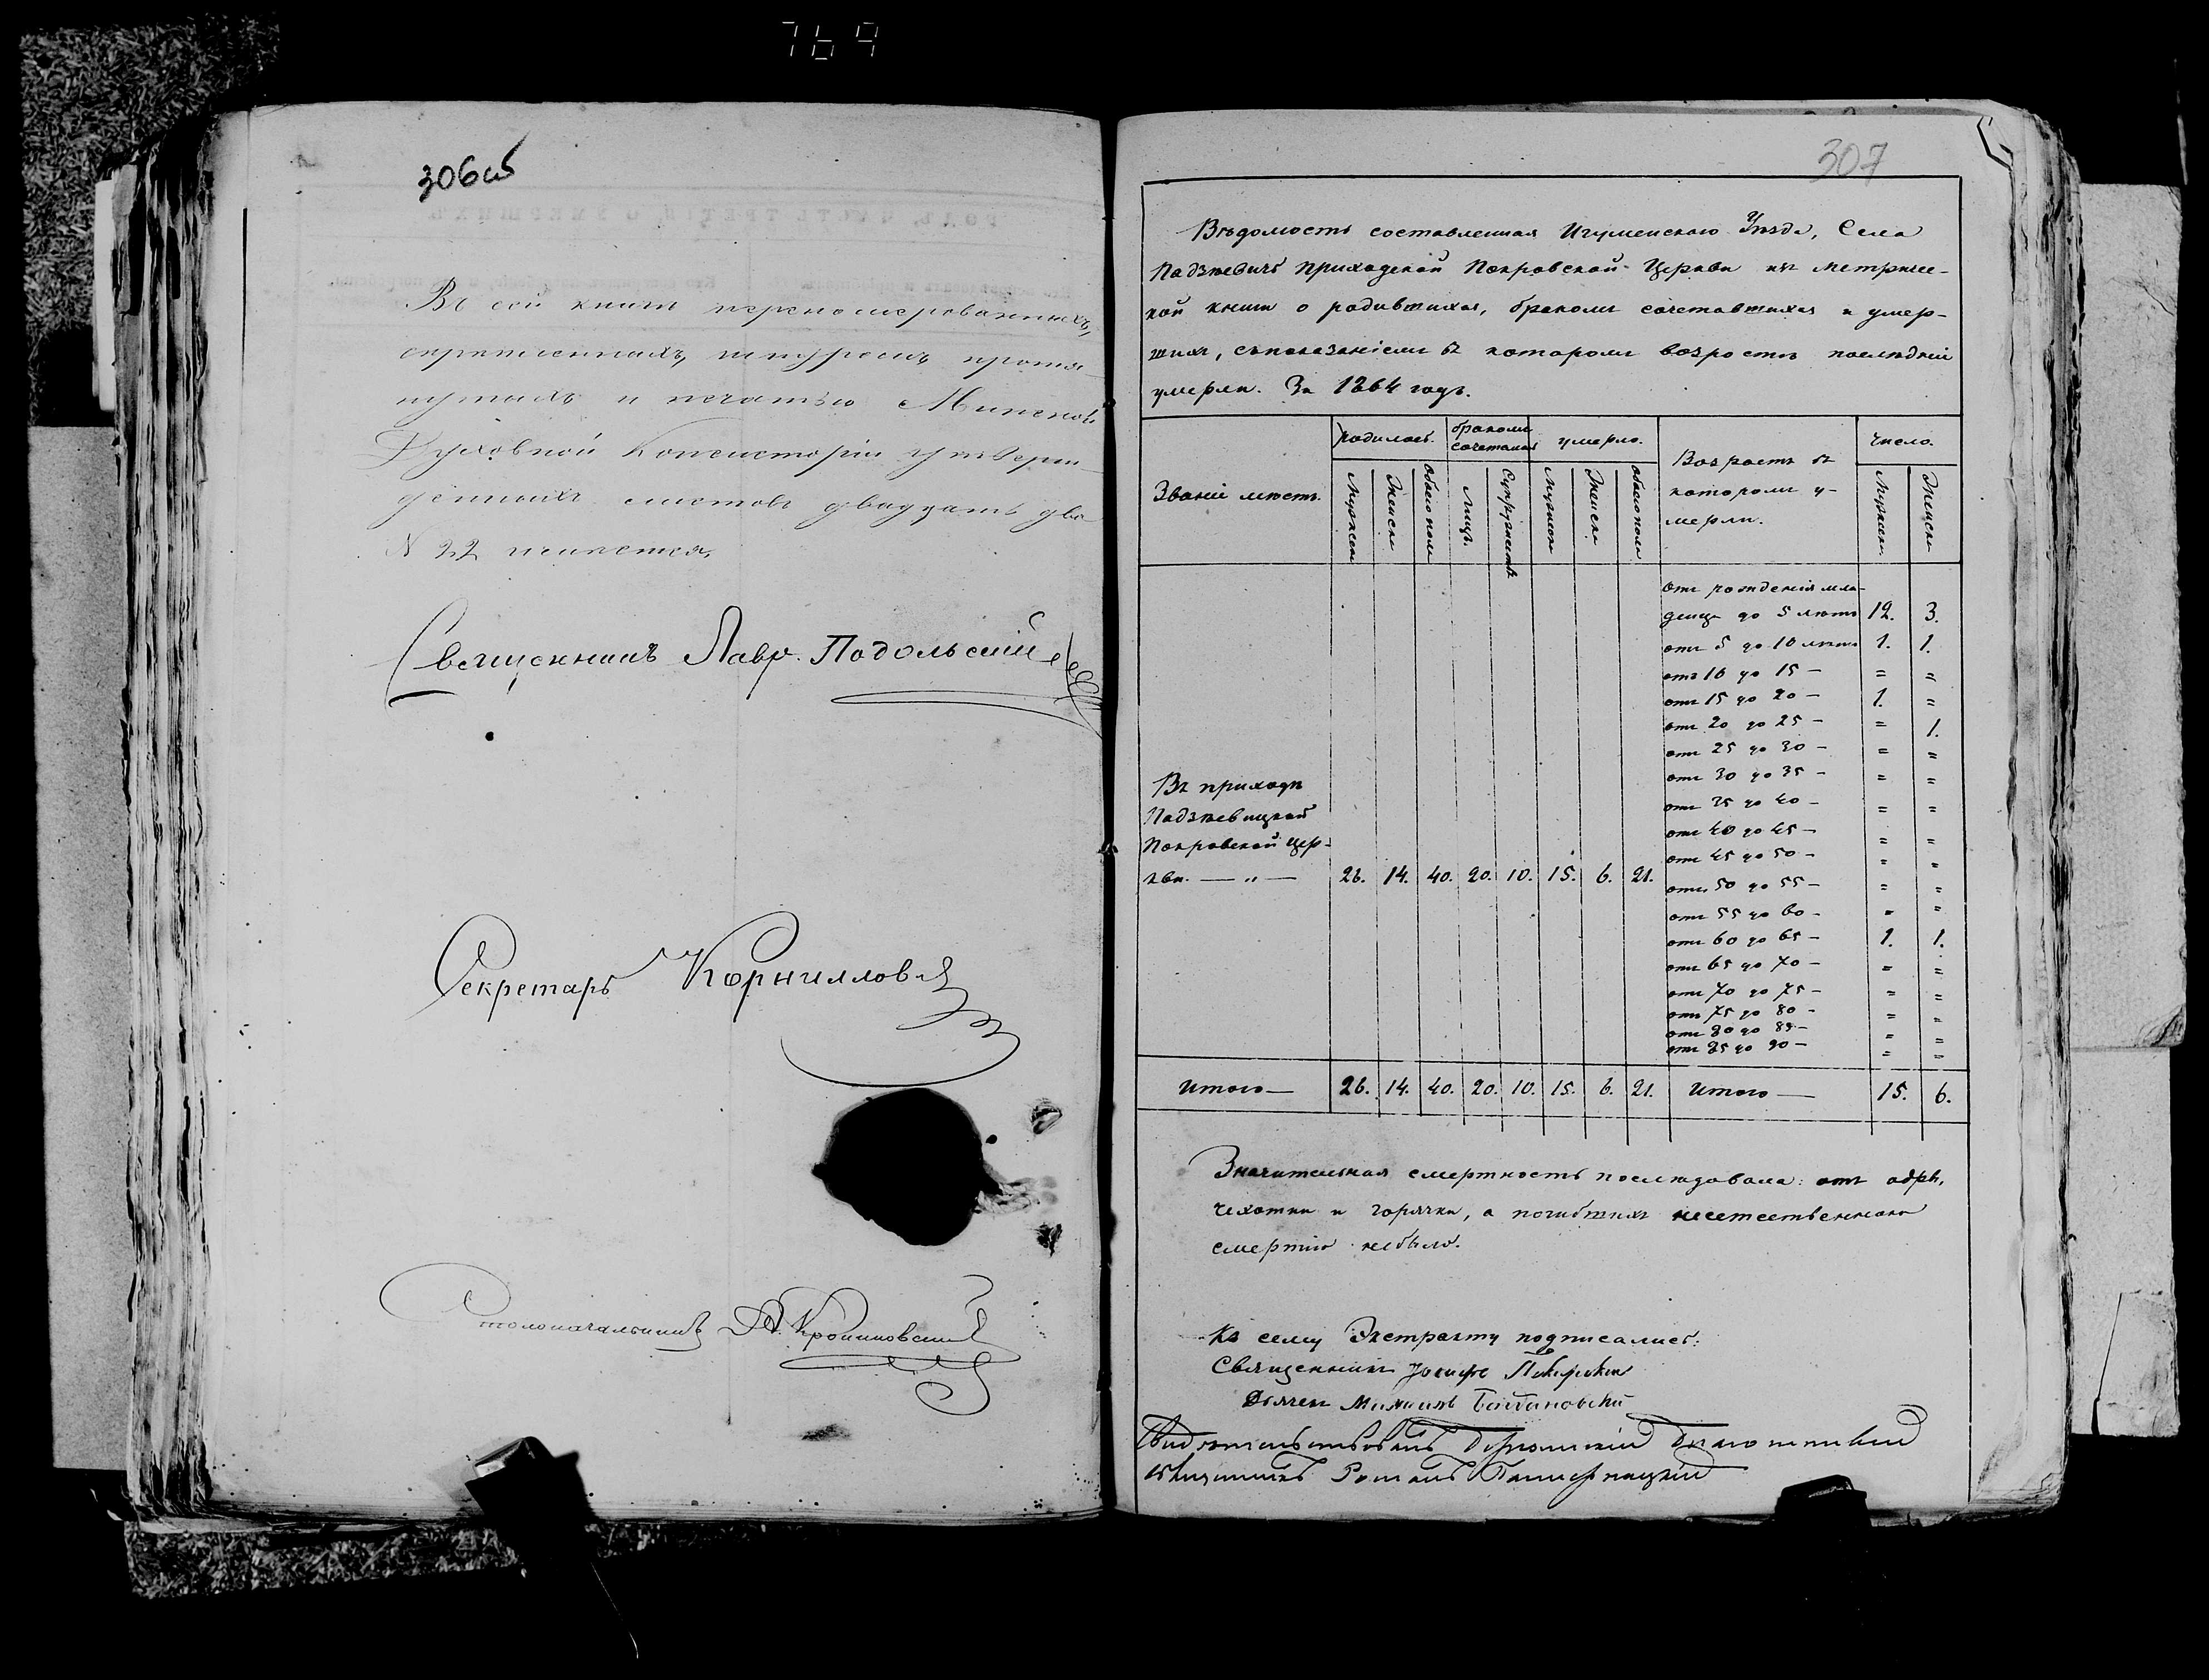 769
306об
Въ сей книгѣ перенумерованныхъ,
скрѣпленныхъ, шнуромъ протя-
нутыхъ и печатью Минской
Духовной Консисторіи утверж-
денныхъ листовъ двадцать два
N 22 имѣется.
Священникъ Лавр. Подольскій
Секретарь Корниловъ
Столоначальникъ
307
Вѣдомость составленная Игуменскаго Уѣзда, Села
Падзѣевичъ Приходской Покровской Церкви къ метричес-
кой книги о родившихся, бракомъ сочетавшихся и умер-
шихъ, съпоказаніемъ въ которомъ возростѣ послѣдніи
умерли. За 1864 годъ.
Званіе мѣстъ.
родилось.
бракомъ
сочеталось
умерло.
Возрастъ въ
которомъ у-
мерли.
Число.
Мужеск
Женск
Обоего пола
Лицъ.
Супружествъ
Мужеск
Женск
Обоего пола
Мужеск.
Женск
отъ рожденія мла-
денца до 5 лѣтъ 12. 3.
отъ 5 до 10 лѣтъ 1. 1.
отъ 10 до 15 — = =
отъ 15 до 20 — 1. =
отъ 20 до 25 — = 1.
отъ 25 до 30 — = =
отъ 30 до 35 — = =
отъ 35 до 40 — = =
отъ 40 до 45 — = =
отъ 45 до 50 — = =
отъ 50 до 55 — = =
отъ 55 до 60 — = =
отъ 60 до 65 — 1. 1.
отъ 65 до 70 — = =
отъ 70 до 75 — = =
отъ 75 до 80 — = =
отъ 80 до 85 — = =
отъ 85 до 90 — = =
Въ приходѣ
Падзѣевицкой
Покровской Цер-
кви. — „ — 26. 14. 40. 20. 10. 15. 6. 21.
Итого — 26. 14. 40. 20. 10. 15. 6. 21. Итого — 15. 6.
Значительная смертность послѣдовала: отъ одры,
чехотки и горячки, а погибшихъ несетественною
смертію небыло.
Къ сему Экстракту подписались:
Священникъ Іосифъ
Дьячекъ Михаилъ
Благочинный
Священникъ Романъ